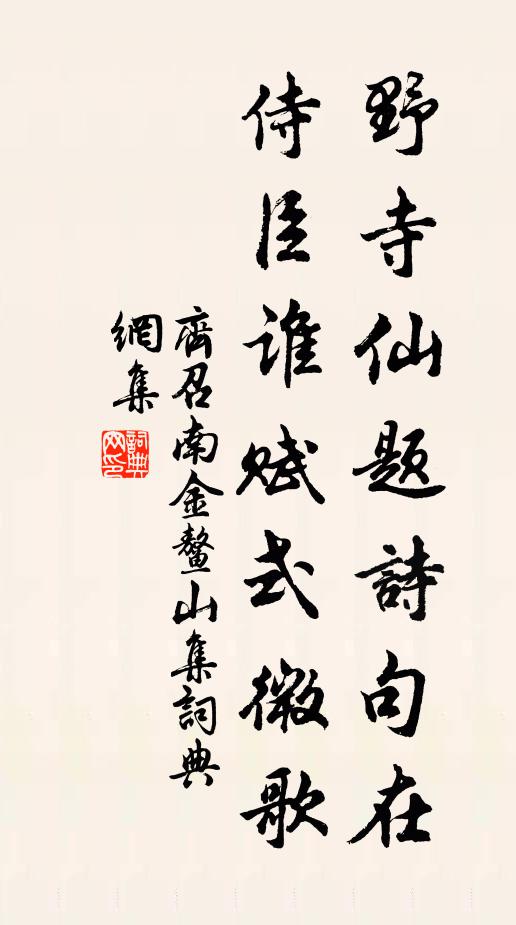 野寺仙題詩句在
侍臣誰賦式微歌
齊召南金鰲山集詞典
網集
詞典網印